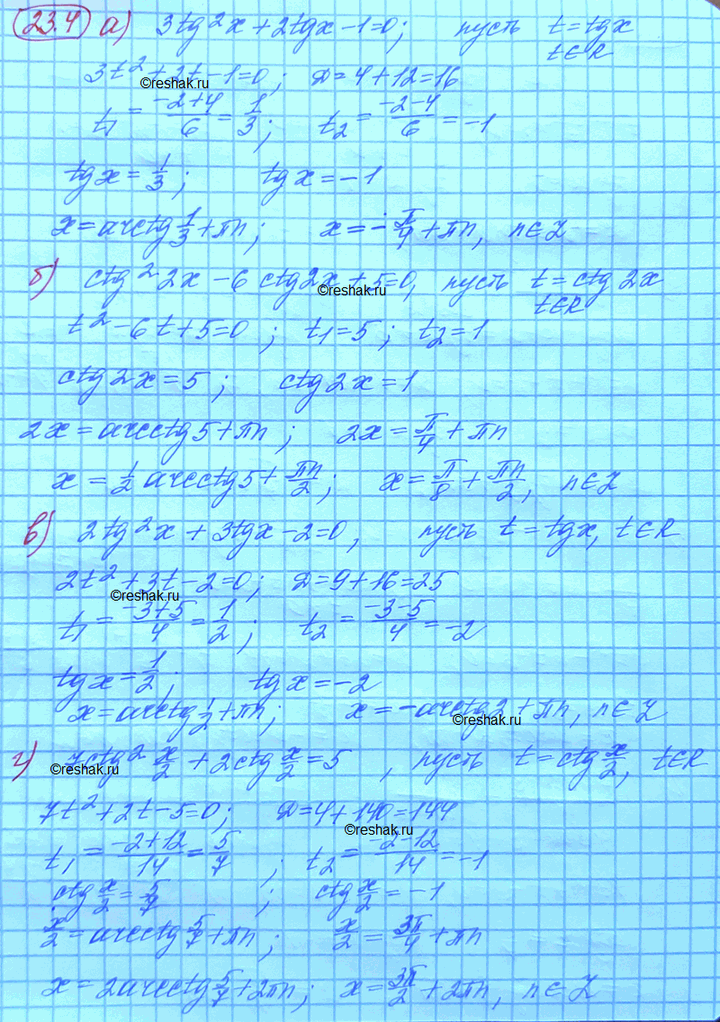 23.4 а) 3tg²x + 2tgx - 1 = 0; пусть t = tgx
t∈R
3t² + 2t - 1 = 0; D = 4 + 12 = 16
©reshak.ru
t₁ = (-2+4)/6 = 1/3; t₂ = (-2-4)/6 = -1
tgx = 1/3; tgx = -1
x = arctg 1/3 + πn; x = -π/4 + πn, n∈Z
б) ctg²2x - 6 ctg2x + 5 = 0, пусть t = ctg 2x
©reshak.ru
t∈R
t² - 6t + 5 = 0; t₁ = 5; t₂ = 1
ctg2x = 5; ctg2x = 1
2x = arcctg5 + πn; 2x = π/4 + πn
x = 1/2 arcctg5 + πn/2; x = π/8 + πn/2, n∈Z
в) 2tg²x + 3tgx - 2 = 0, пусть t = tgx, t∈R
2t² + 3t - 2 = 0; D = 9 + 16 = 25
©reshak.ru
t₁ = (-3+5)/4 = 1/2; t₂ = (-3-5)/4 = -2
tgx = 1/2; tgx = -2
x = arctg 1/2 + πn; x = -arctg2 + πn, n∈Z
©reshak.ru
г) 7ctg² x/2 + 2ctg x/2 = 5, пусть t = ctg x/2, t∈R
©reshak.ru
7t² + 2t - 5 = 0; D = 4 + 140 = 144
©reshak.ru
t₁ = (-2+12)/14 = 5/7; t₂ = (-2-12)/14 = -1
ctg x/2 = 5/7; ctg x/2 = -1
x/2 = arcctg 5/7 + πn; x/2 = 3π/4 + πn
x = 2arcctg 5/7 + 2πn; x = 3π/2 + 2πn, n∈Z